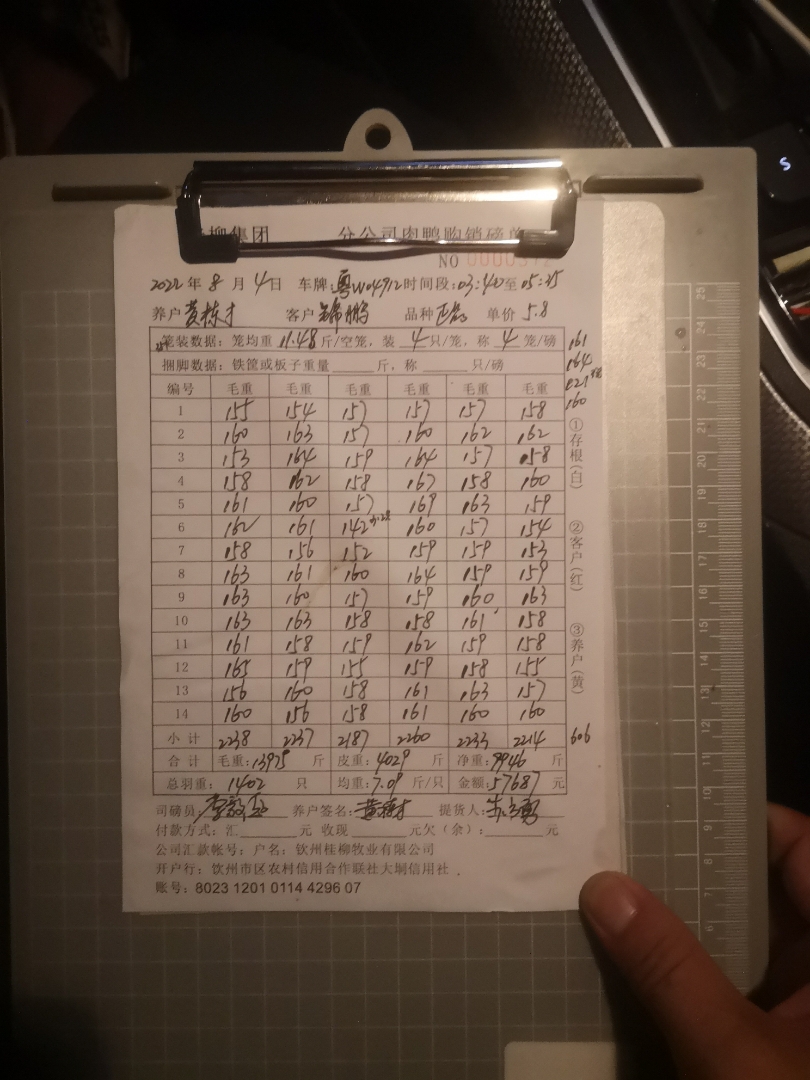 柳集团 分公司肉鸭购销磅单
NO 0000572
2022年8月4日 车牌:粤W04912时间段:03:40至05:25
养户黄栋才 客户锦鹏 品种 单价5.8
笼装数据:笼均重11.48斤/空笼,装4只/笼,称4笼/磅 161
捆脚数据:铁筐或板子重量 斤,称 只/磅 164
121
编号 毛重 毛重 毛重 毛重 毛重 毛重 160
1 155 154 157 157 157 158
2 160 163 157 160 162 162
3 153 164 159 164 157 158
4 158 162 158 167 158 160
5 161 160 157 169 163 159
6 162 161 142 160 157 154
7 158 156 152 159 159 153
8 163 161 160 164 159 159
9 163 160 157 159 160 163
10 163 163 158 158 161 158
11 161 158 159 162 159 158
12 165 159 155 159 158 155
13 156 160 158 161 163 157
14 160 156 158 161 160 160
小计 2238 2237 2187 2260 2233 2214 606
合计 毛重:13975斤 皮重:4029斤 净重:9946斤
总羽重:1402只 均重:7.09斤/只 金额:57687元
司磅员: 养户签名:黄栋才 提货人:
付款方式:汇 元 收现 元欠(余): 元
公司汇款帐号:户名:钦州桂柳牧业有限公司
开户行:钦州市区农村信用合作联社大垌信用社
账号:8023 1201 0114 4296 07
①存根(白) ②客户(红) ③养户(黄)
25
24
23
22
21
20
19
18
17
16
15
14
13
12
11
10
9
8
7
6
S